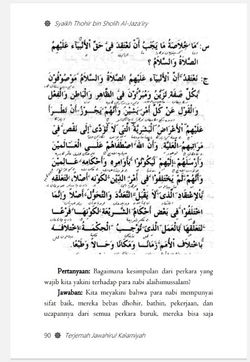 Syaikh Thohir bin Sholih Al-Jaza'iry
س: مَا خُلَاصَةُ مَا يَجِبُ أَنْ نَعْتَقِدَ فِي حَقِّ الْأَنْبِيَاءِ عَلَيْهِمُ
الصَّلَاةُ وَالسَّلَامُ ؟
ج: نَعْتَقِدُ أَنَّ الْأَنْبِيَاءَ عَلَيْهِمُ الصَّلَاةُ وَالسَّلَامُ مَوْصُوفُونَ
بِكُلِّ صِفَةٍ تَزِينُ وَمُبَرَّءُونَ فِي الظَّاهِرِ وَالْبَاطِنِ وَالْفِعْلِ
وَالْقَوْلِ عَنْ كُلِّ أَمْرٍ يَشِينُ وَأَنَّهُمْ يَجُوزُ أَنْ تَطْرَأَ
عَلَيْهِمُ الْأَعْرَاضُ الْبَشَرِيَّةُ الَّتِي لَا تُؤَدِّي إِلَى نَقْصٍ فِي
مَرَاتِبِهِمُ الْعَلِيَّةِ وَأَنَّ اللهَ اصْطَفَاهُمْ عَلَى الْعَالَمِينَ
وَأَرْسَلَهُمْ إِلَيْهِمْ لِيَكُونُوا بِأَوَامِرِهِ وَأَحْكَامِهِ عَالِمِينَ
وَأَنَّهُمْ لَمْ يَخْتَلِفُوا فِي أَمْرِ الدِّينِ لِكَوْنِهِ أَصْلًا لِتَعَلُّقِهِ
بِالْاِعْتِقَادِ الَّذِي لَا يَقْبَلُ التَّعَدُّدَ وَالتَّحَوُّلَ أَصْلًا وَإِنَّمَا
اخْتَلَفُوا فِي بَعْضِ أَحْكَامِ الشَّرِيعَةِ لِكَوْنِهَا فَرْعًا
لِتَعَلُّقِهَا بِالْعَمَلِ الَّذِي تُوجِبُ الْحِكْمَةُ اخْتِلَافَهُ
بِاخْتِلَافِ الْأُمَمِ زَمَانًا وَمَكَانًا وَحَالًا وَطَبْعًا.
Pertanyaan: Bagaimana kesimpulan dari perkara yang
wajib kita yakini terhadap para nabi alaihimussalam?
Jawaban: Kita meyakini bahwa para nabi mempunyai
sifat baik, mereka bebas dhohir, bathin, pekerjaan, dan
ucapannya dari semua perkara buruk, mereka bisa saja
90 Terjemah Jawahirul Kalamiyah